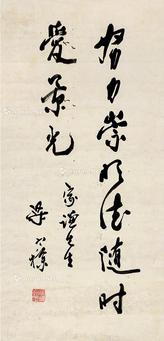 努力崇明德随时
爱景光
家谦先生
梁寒操